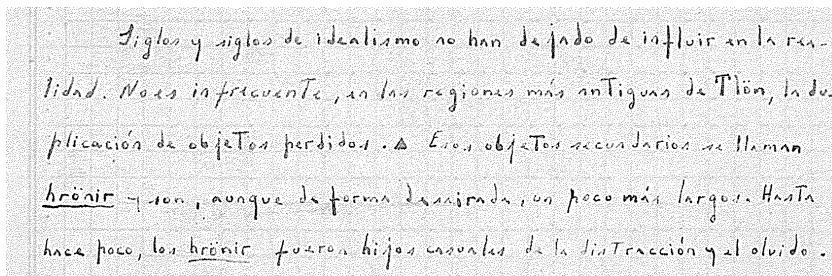 Siglos y siglos de idealismo no han dejado de influir en la rea-
lidad. No es infrecuente, en las regiones más antiguas de Tlön, la du-
plicación de objetos perdidos. Δ Esos objetos secundarios se llaman
hrönir y son, aunque de forma desairada, un poco más largos. Hasta
hace poco, los hrönir fueron hijos casuales de la distracción y el olvido.